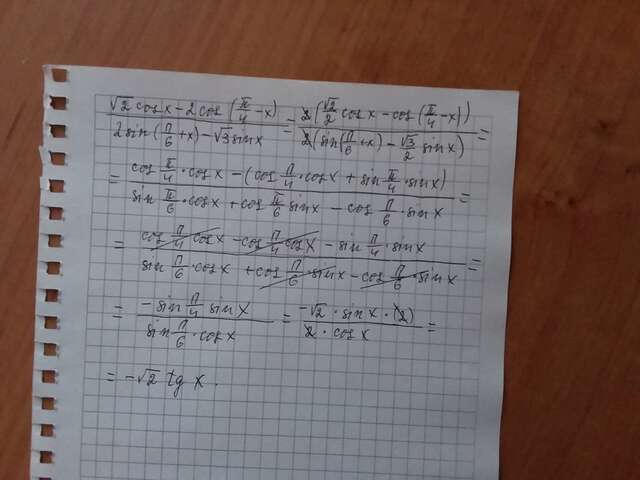 (√2 cos x - 2 cos (π/4 - x)) / (2 sin (π/6 + x) - √3 sin x) = (2(√2/2 cos x - cos (π/4 - x))) / (2(sin(π/6 + x) - √3/2 sin x)) =
= (cos π/4 · cos x - (cos π/4 · cos x + sin π/4 · sin x)) / (sin π/6 · cos x + cos π/6 sin x - cos π/6 · sin x) =
= (cos π/4 cos x - cos π/4 cos x - sin π/4 · sin x) / (sin π/6 · cos x + cos π/6 · sin x - cos π/6 · sin x) =
= (- sin π/4 sin x) / (sin π/6 · cos x) = (-√2 · sin x · (2)) / (2 · cos x) =
= -√2 tg x.